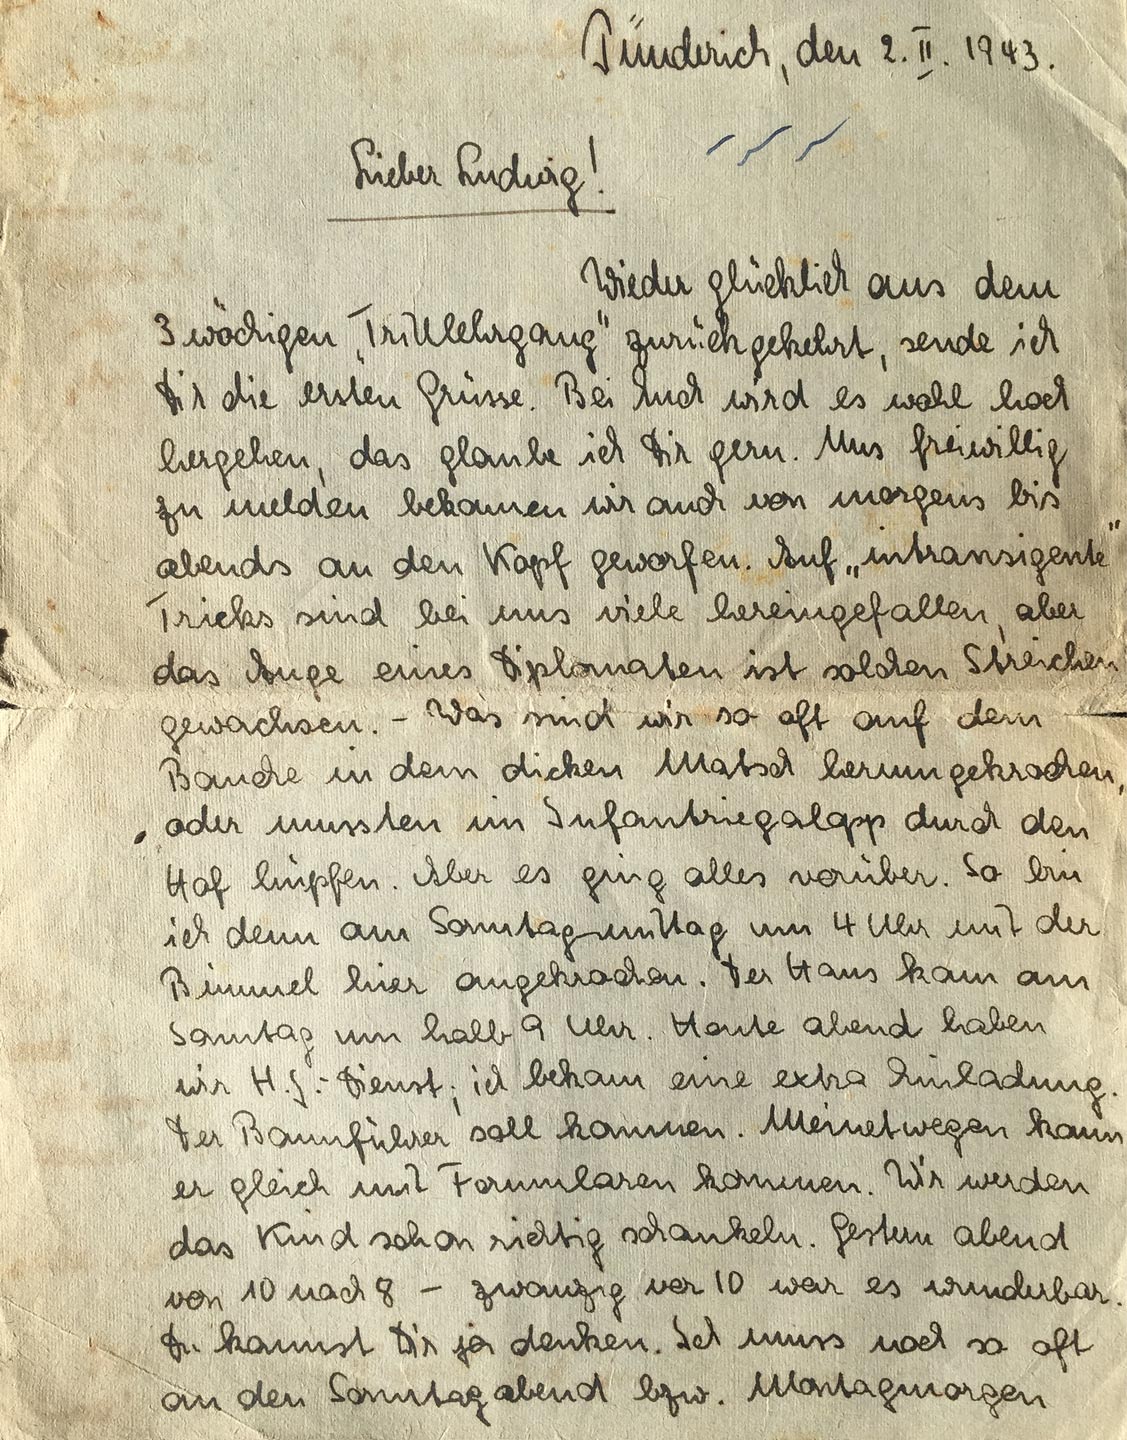 Pünderich, den 2. II. 1943.
Lieber Ludwig!
Wieder glücklich aus dem
3 wöchigen „Drilllehrgang" zurückgekehrt, sende ich
Dir die ersten Grüsse. Bei Euch wird es wohl hoch
hergehen, das glaube ich Dir gern. Uns freiwillig
zu melden bekamen wir auch von morgens bis
abends an den Kopf geworfen. Auf „intransigente"
Tricks sind bei uns viele hereingefallen, aber
das Auge eines Diplomaten ist solchen Streichen
gewachsen. – Was sind wir so oft auf dem
Bauche in dem dicken Matsch herumgekrochen,
oder mussten im Infantriegalopp durch den
Hof hüpfen. Aber es ging alles vorüber. So bin
ich denn am Sonntagmittag um 4 Uhr mit der
Bimmel hier angekrochen. Der Hans kam am
Sonntag um halb 9 Uhr. Heute abend haben
wir H.J.-Dienst; ich bekam eine extra Einladung.
Der Bannführer soll kommen. Meinetwegen kann
er gleich mit Formularen kommen. Wir werden
das Kind schon richtig schaukeln. Gestern abend
von 10 nach 8 – zwanzig vor 10 war es wunderbar.
Du kannst Dir ja denken. Ich muss noch so oft
an den Sonntagabend bzw. Montagmorgen